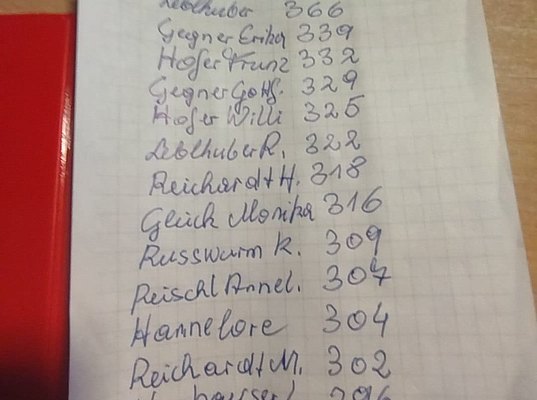 Leblhuber 366
Gegner Erika 339
Hofer Franz 332
Gegner Gottf. 329
Hofer Willi 325
Leblhuber R. 322
Reichardt H. 318
Glück Monika 316
Russwurm K. 309
Reischl Annel. 307
Hannelore 304
Reichardt M. 302
296